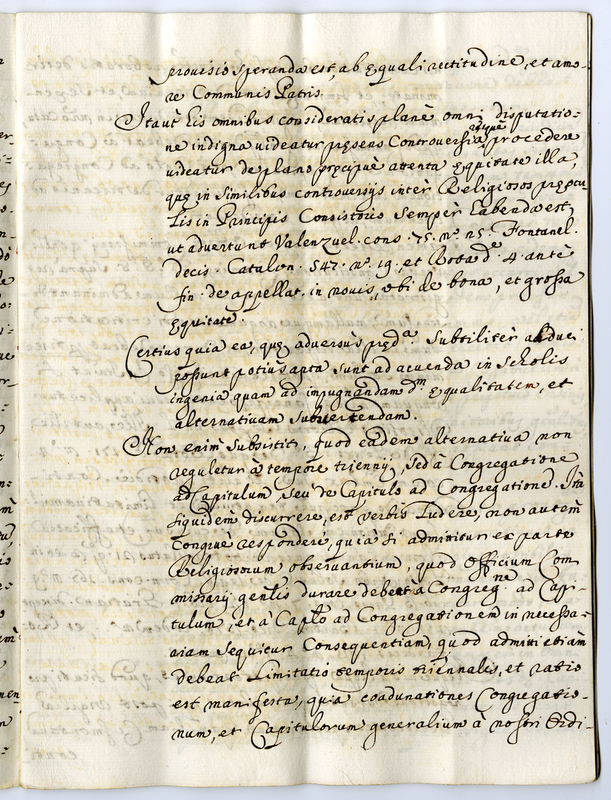 provisio speranda est, ab ęquali rectitudine, et amo-
re Communis Patris.
Itaut his omnibus consideratis planè omni disputatio-
ne indigna uideatur pręsens Controuersia, atque procedere
uideatur de plano pręcipuè attenta ęquitate illa,
quę in similibus controuersijs inter Religiosos pręcu
lis in Principis Consistorio semper habenda est,
ut aduertunt Valenzuel. cons. 75. nº. 25. Fontanel.
decis. Catalon. 547. nº. 19, et Rota dª. 4. ante
fin. de appellat. in nouis, ubi de bona, et grossa
ęquitate.
Certius quia ea, quę aduersus pręd.ª subtiliter adduci
possunt potius apta sunt ad acuenda in scholis
ingenia quam ad impugnandam d.m ęqualitatem, et
alternatiuam subuertendam.
Non enim subsistit, quod eadem alternatiua non
reguletur à tempore triennij, sed à Congregatione
ad Capitulum, seu de Capitulo ad Congregationē. Ita
siquidem discurrere, est verbis ludere, non autem
congruè respondere, quia si admititur ex parte
Religiosorum obseruantium, quod officium Com
missarij gen͠lis durare debeat à Congreg.ne ad Capi-
tulum, et à Cap͠lo ad Congregationem in necessa-
riam sequitur Consequentiam, quod admiti etiam
debeat limitatio temporis triennalis, et ratio
est manifesta, quia coadunationes Congregatio-
num, et Capitulorum generalium à nostri Ordi-